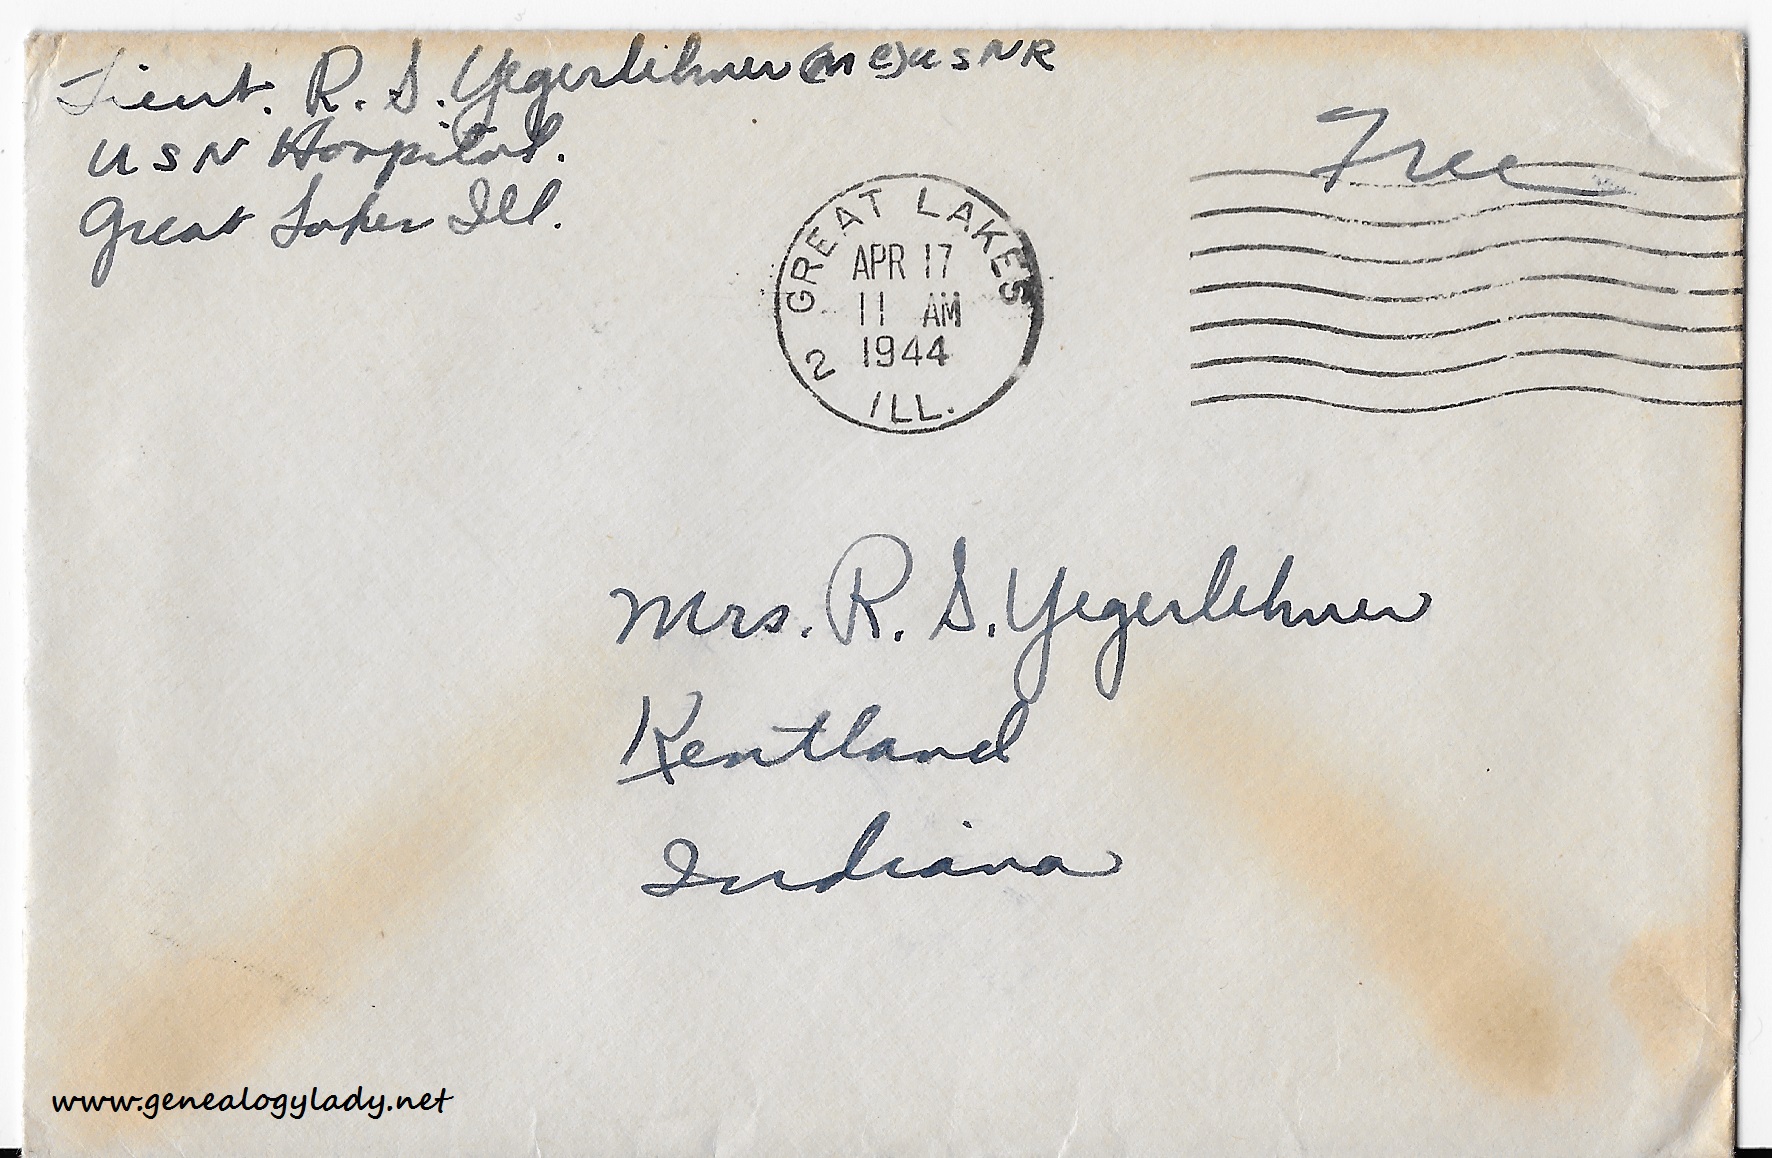 Lieut. R. S. Yegerlehner (MC) USNR
USN Hospital.
Great Lakes Ill.
Free
GREAT LAKES
APR 17
11 AM
1944
2
ILL.
Mrs. R. S. Yegerlehner
Kentland
Indiana
www.genealogylady.net